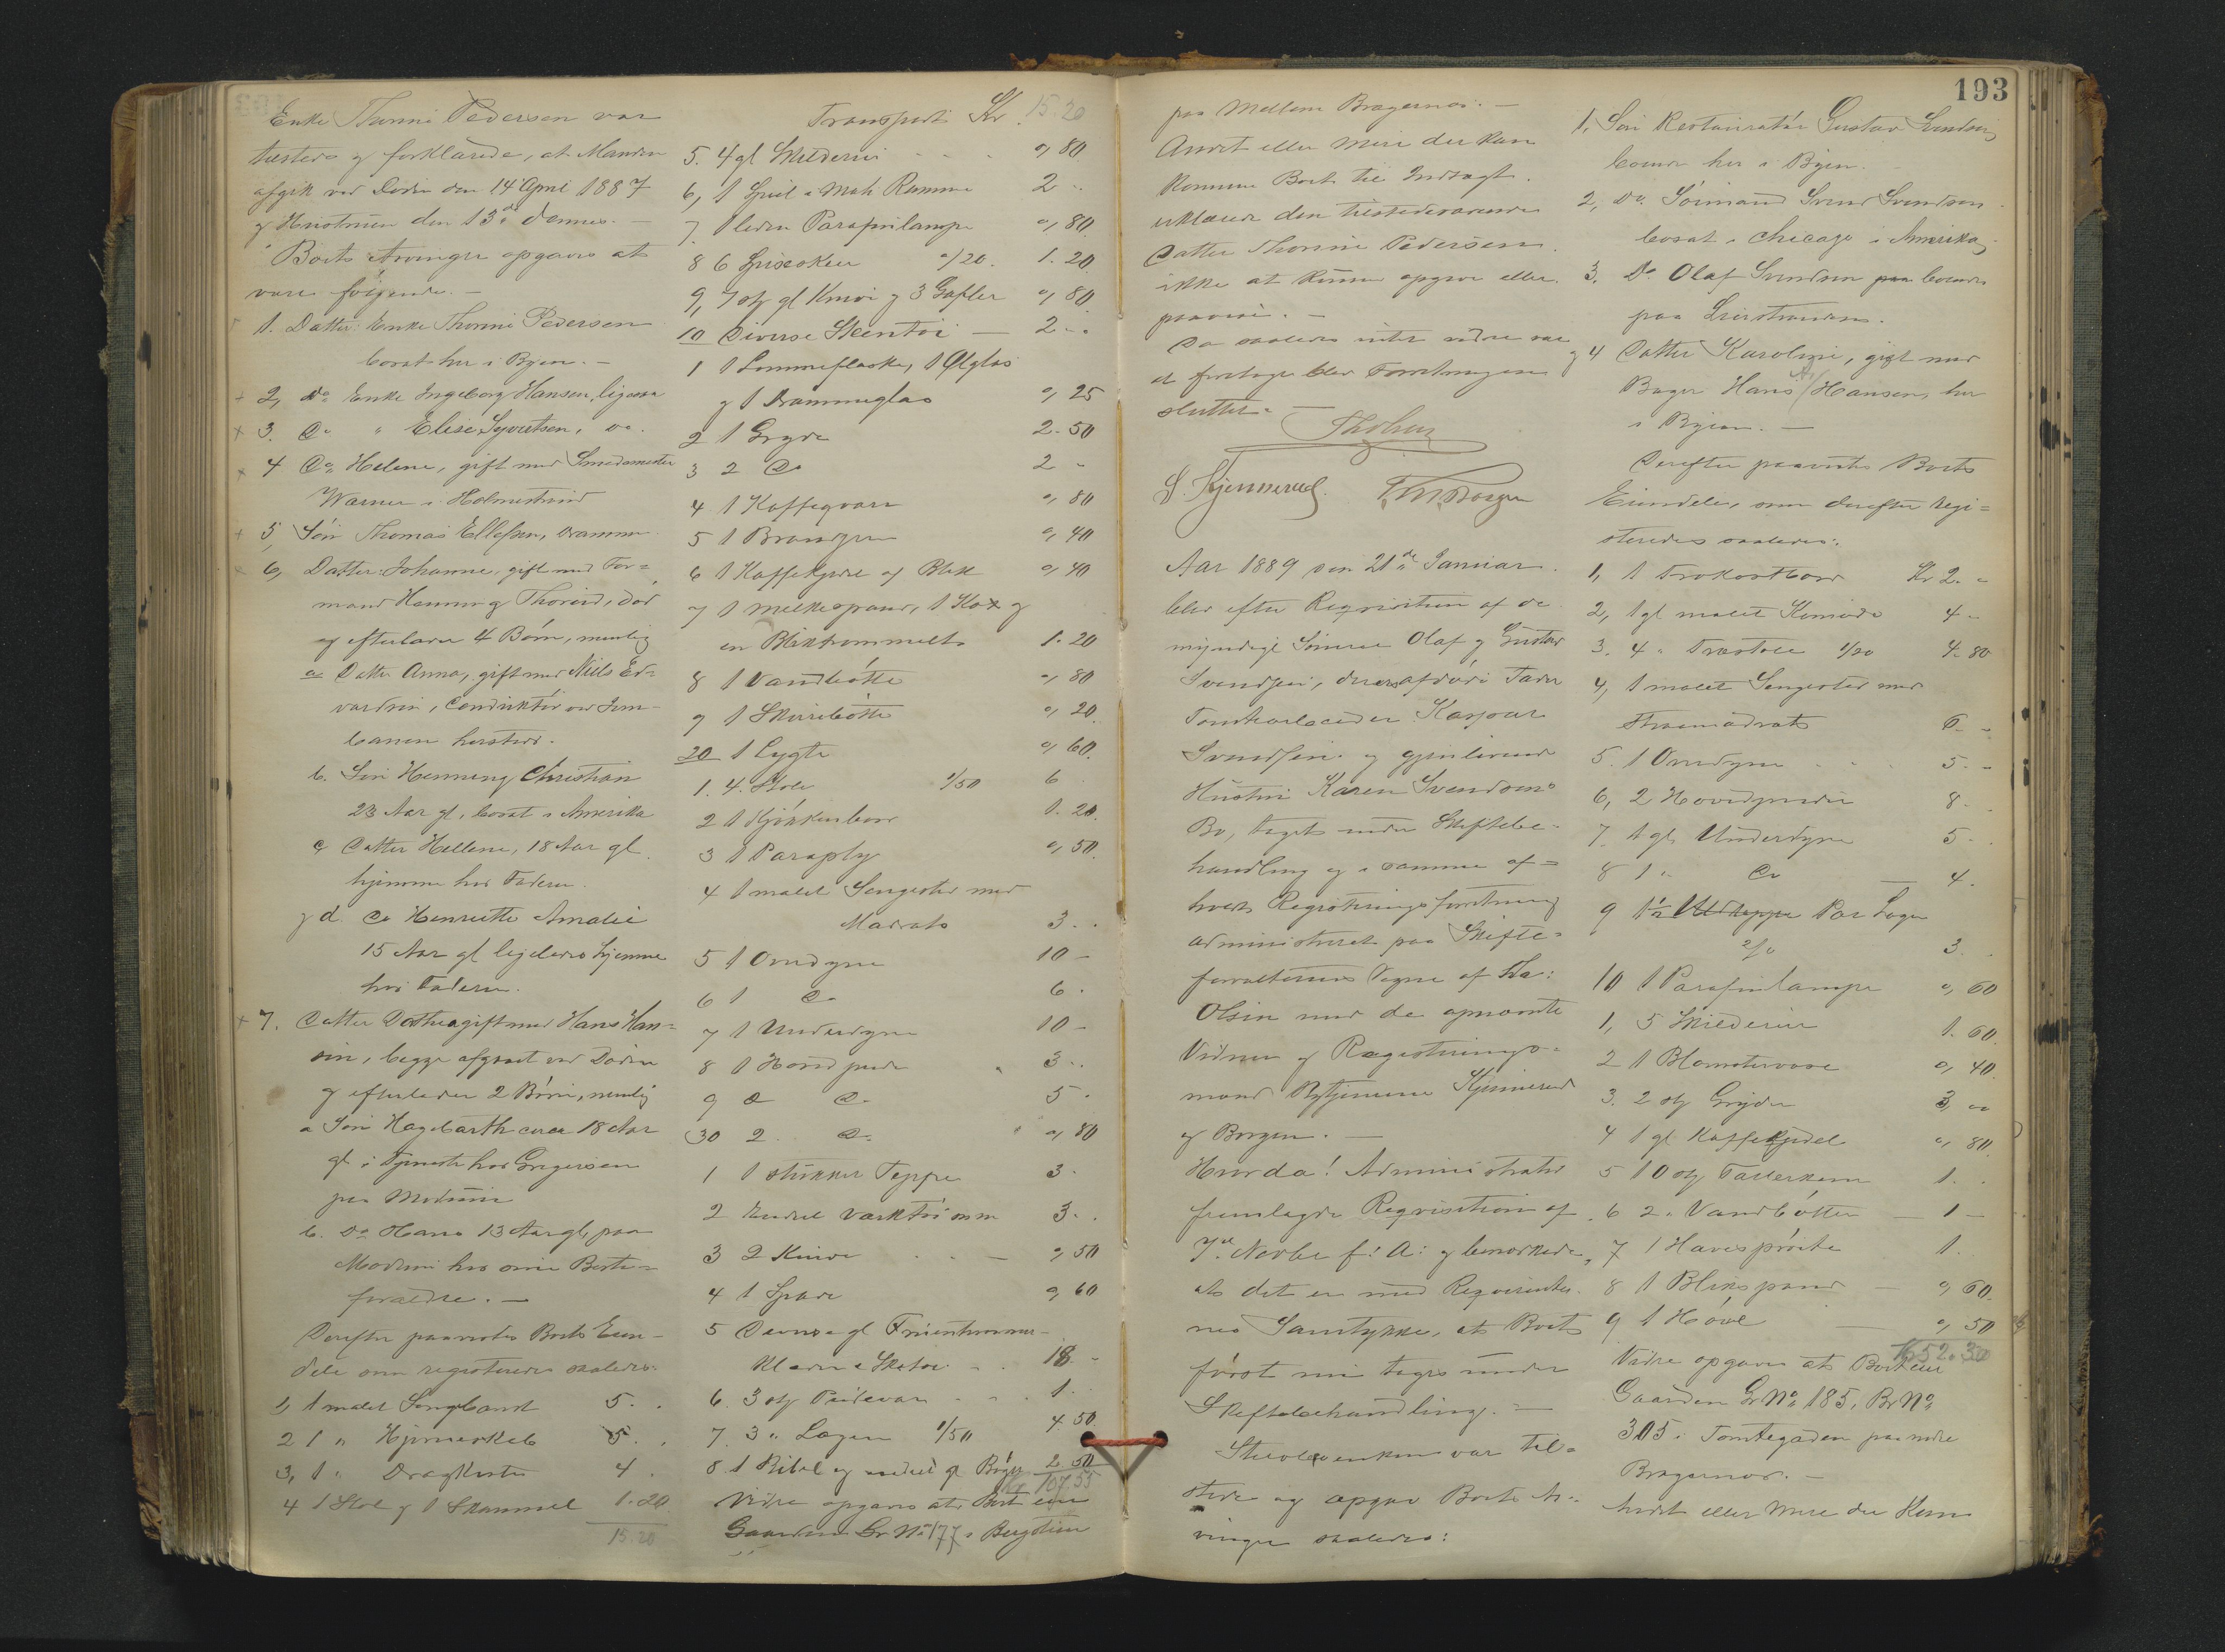 Enke Thorine Pedersen var
tilstede og forklarede, at Manden
afgik ved Døden den 14 April 1887
og Hustruen den 13de dennes. —
Boets Arvinger opgaves at
være følgende. —
1. Datter: Enke Thorine Pedersen
bosat her i Byen. —
2, do Enke Ingeborg Hansen, ligesaa
3. Do " Elise Syvertsen, do.
4 Do Helene, gift med Smedemester
Warner i Holmestrand
5, Søn Thomas Ellefsen, Drammen
6, Datter: Johanne, gift med For=
mand Henning Thorud, død
og efterlader 4 Børn, nemlig
a Datter Anna, gift med Niels Ed=
vardsen, Conduktør ved Jern=
banen hersteds.
b. Søn Henning Christian
23 Aar gl, bosat i Amerika
c Datter Hellene, 18 Aar gl.
hjemme hos Faderen.
og d. Do Henriette Amalie
15 Aar gl ligeledes hjemme
hos Faderen.
7. Datter Dorthea gift med Hans Han=
sen, begge afgaaet ved Døden
og efterlader 2 Børn, nemlig
a Søn Hagbarth circa 18 Aar
gl i Tjeneste hos Gregersen
paa Modum
b. Do Hans 13 Aar gl, paa
Modum hos sine Beste=
forældre. —
Derefter paavistes Boets Eien=
dele som registreredes saaledes:
1, 1 malet 5. .
2 1 " Hjørneskab 5. .
3, 1 " Dragkiste 4 .
4 1 Stol og 1 Skammel 1.20
15.20
Transport Kr 15.20
5. 4 gl Skilderier 0,80
6, 1 Speil i Mah Ramme 2 -
7. 1 liden Parafinlampe 0,80
8 6 Spiseskeer 0/20. 1.20
9, 7 stk gl Knive og 3 Gafler 0,80
10 Diverse Steentøi — 2 - .
1 1 Lommeflaske, 1 Ølglas
og 1 Drammeglas 0,25
2 1 Gryde 2.50
3 2 Do 2 -
4 1 Kaffeqværn 0,80
5 1 0,40
6 1 Kaffekjedel af Blik 0,40
7 1 Melkespand, 1 og
en Bliktrommel 1.20
8 1 Vandbøtte 0,80
9 1 Skurebøtte 0,20
20 1 Lygte 0,60
1. 4. Stole 1/50 6
2 1 Kjøkkenbord 1.20
3 1 Paraply 0,50
4 1 malet Sengested med
Madrats 3 . .
5 1 Overdyne 10 -
6 1 Do 6 .
7 1 Underdyne 10 -
8 1 Hovedpude 3 . .
9 2 Do 5 .
30 2 Do 0,80
1 1 strikket Teppe 3 .
2 Endel Værktøi 3 . .
3 2 Knive 0,50
4 1 Spade 0,60
5 Diverse gl Fruentimmer-
klæder 18 -
6. 3 stk Pudevar 1 .
7. 3 " Lagen 1/50 4 50
8 1 Bibel og endeel gl Bøger 2 50
Kr 107,55
Videre opgaves at Boet eier
Gaarden Gr No 177 i Bergstien
193
paa Mellem Bragernæs. —
Andet eller mere der kan
komme Boet til Indtægt
erklærede den tilstedeværende
Datter Thorine Pedersen
ikke at kunne opgive eller
paavise. —
Da saaledes intet videre var
at foretage blev Forretningen
sluttet. —
S. Kjennerud.
Aar 1889 den 21de Januar
blev efter Reqvisition af de
myndige Sønner Olaf og Gustav
Svendsen, deres afdøde Fader
Tomtearbeider Kaspar
Svendsen og gjenlevende
Hustru Karen Svendsens
Bo, taget under Skiftebe=
handling og i samme af=
holdt Registreringsforretning
administreret paa Skifte=
forvalterens Vegne af
Olsen med de opnævnte
Vidner og Registrerings=
mænd Kjennerud
og Borgen. —
Hvorda! Administrator
fremlagde Reqvisition af
7de Novbr f: A: og bemærkede,
at det er med Reqvirenter=
nes Samtykke, at Boet
først nu tages under
Skiftebehandling. —
Stervboenken var til=
stede og opgav Boets Ar=
vinger saaledes:
1, Søn Restauratør Gustav Svendsen
boende her i Byen.
2, do. Sømand Svend Svendsen
bosat i Chicago i Amerika
3. Do Olaf Svendsen paa boende
paa
og 4 Datter Karoline, gift med
Bager Hans A Hansen, her
i Byen. —
Derefter paavistes Boets
Eiendele, som derefter regi=
streredes saaledes:
1, 1 Frokostbord Kr 2. -
2, 1 gl malet Komode 4 -
3. 4 " Træstole 1/20 4.80
4, 1 malet Sengested med
Straamadrats 6 - -
5. 1 Overdyne 5 . -
6, 2 Hovedpuder 8 -
7. 1 gl Underdyne 5 .
8 1 " Do 4 .
9 1 1/2 Par Lagen
2/0 3 .
10 1 Parafinlampe 0,60
1, 5 Skilderier 1.60
2 1 Blomstervase 0,40
3. 2 stk Gryder 3, "
4 1 gl Kaffekjedel 0,80
5 10 stk Tallerkener 1 . .
6 2 " Vandbøtter — 1 -
7 1 Havesprøite 1 .
8 1 Blikspand — 0,60
9 1 Høvl — 0,50
Kr 52.30
Videre opgaves at Boet eier
Gaarden GrNo 185, BrNo
305 i Tomtegaden paa nedre
Bragernæs. —
Andet eller mere der kan